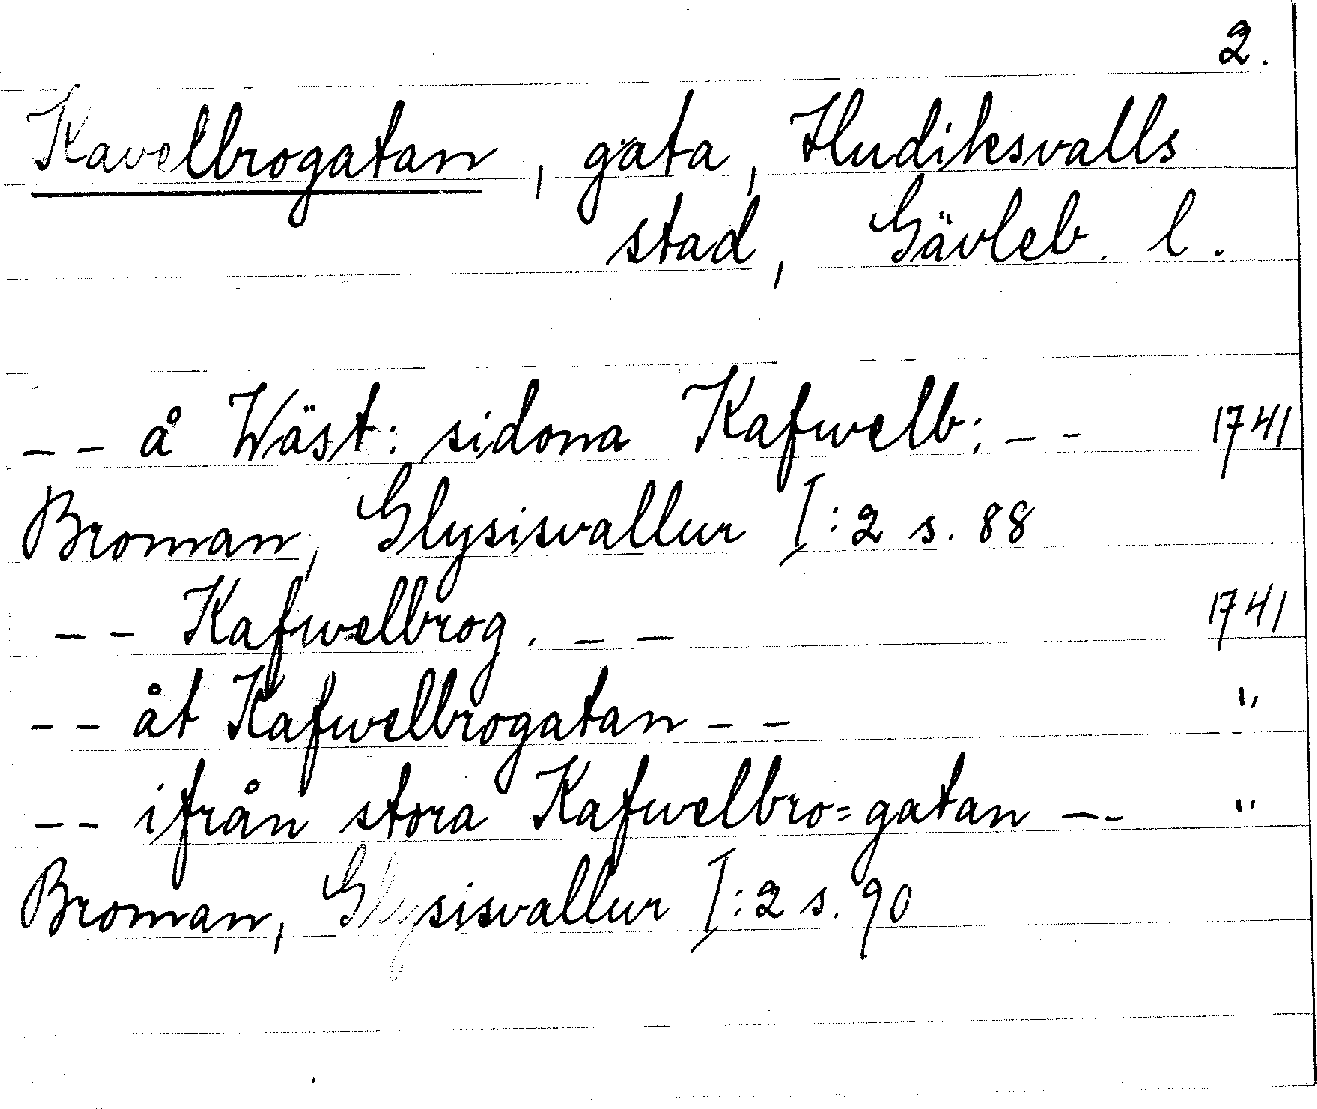 2.
Kavelbrogatan, gata, Hudiksvalls
stad, Gävleb. l.
-- å Wäst: sidona Kafwelb: -- 1741
Broman, Glysisvallur I:2 s. 88
-- Kafwelbrog. -- 1741
-- åt Kafwelbrogatan -- "
-- ifrån stora Kafwelbro=gatan -- "
Broman, Glysisvallur I:2 s. 90